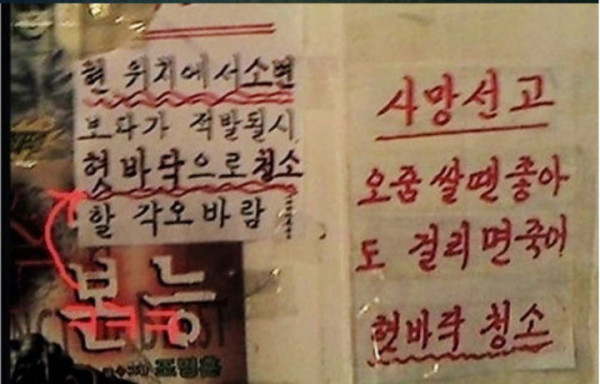 현 위치에서소변
보다가 적발될시
혓바닥으로청소
할 각오바람
본능
조명훈
사망선고
오줌쌀땐좋아
도 걸리면죽어
혓바닥 청소